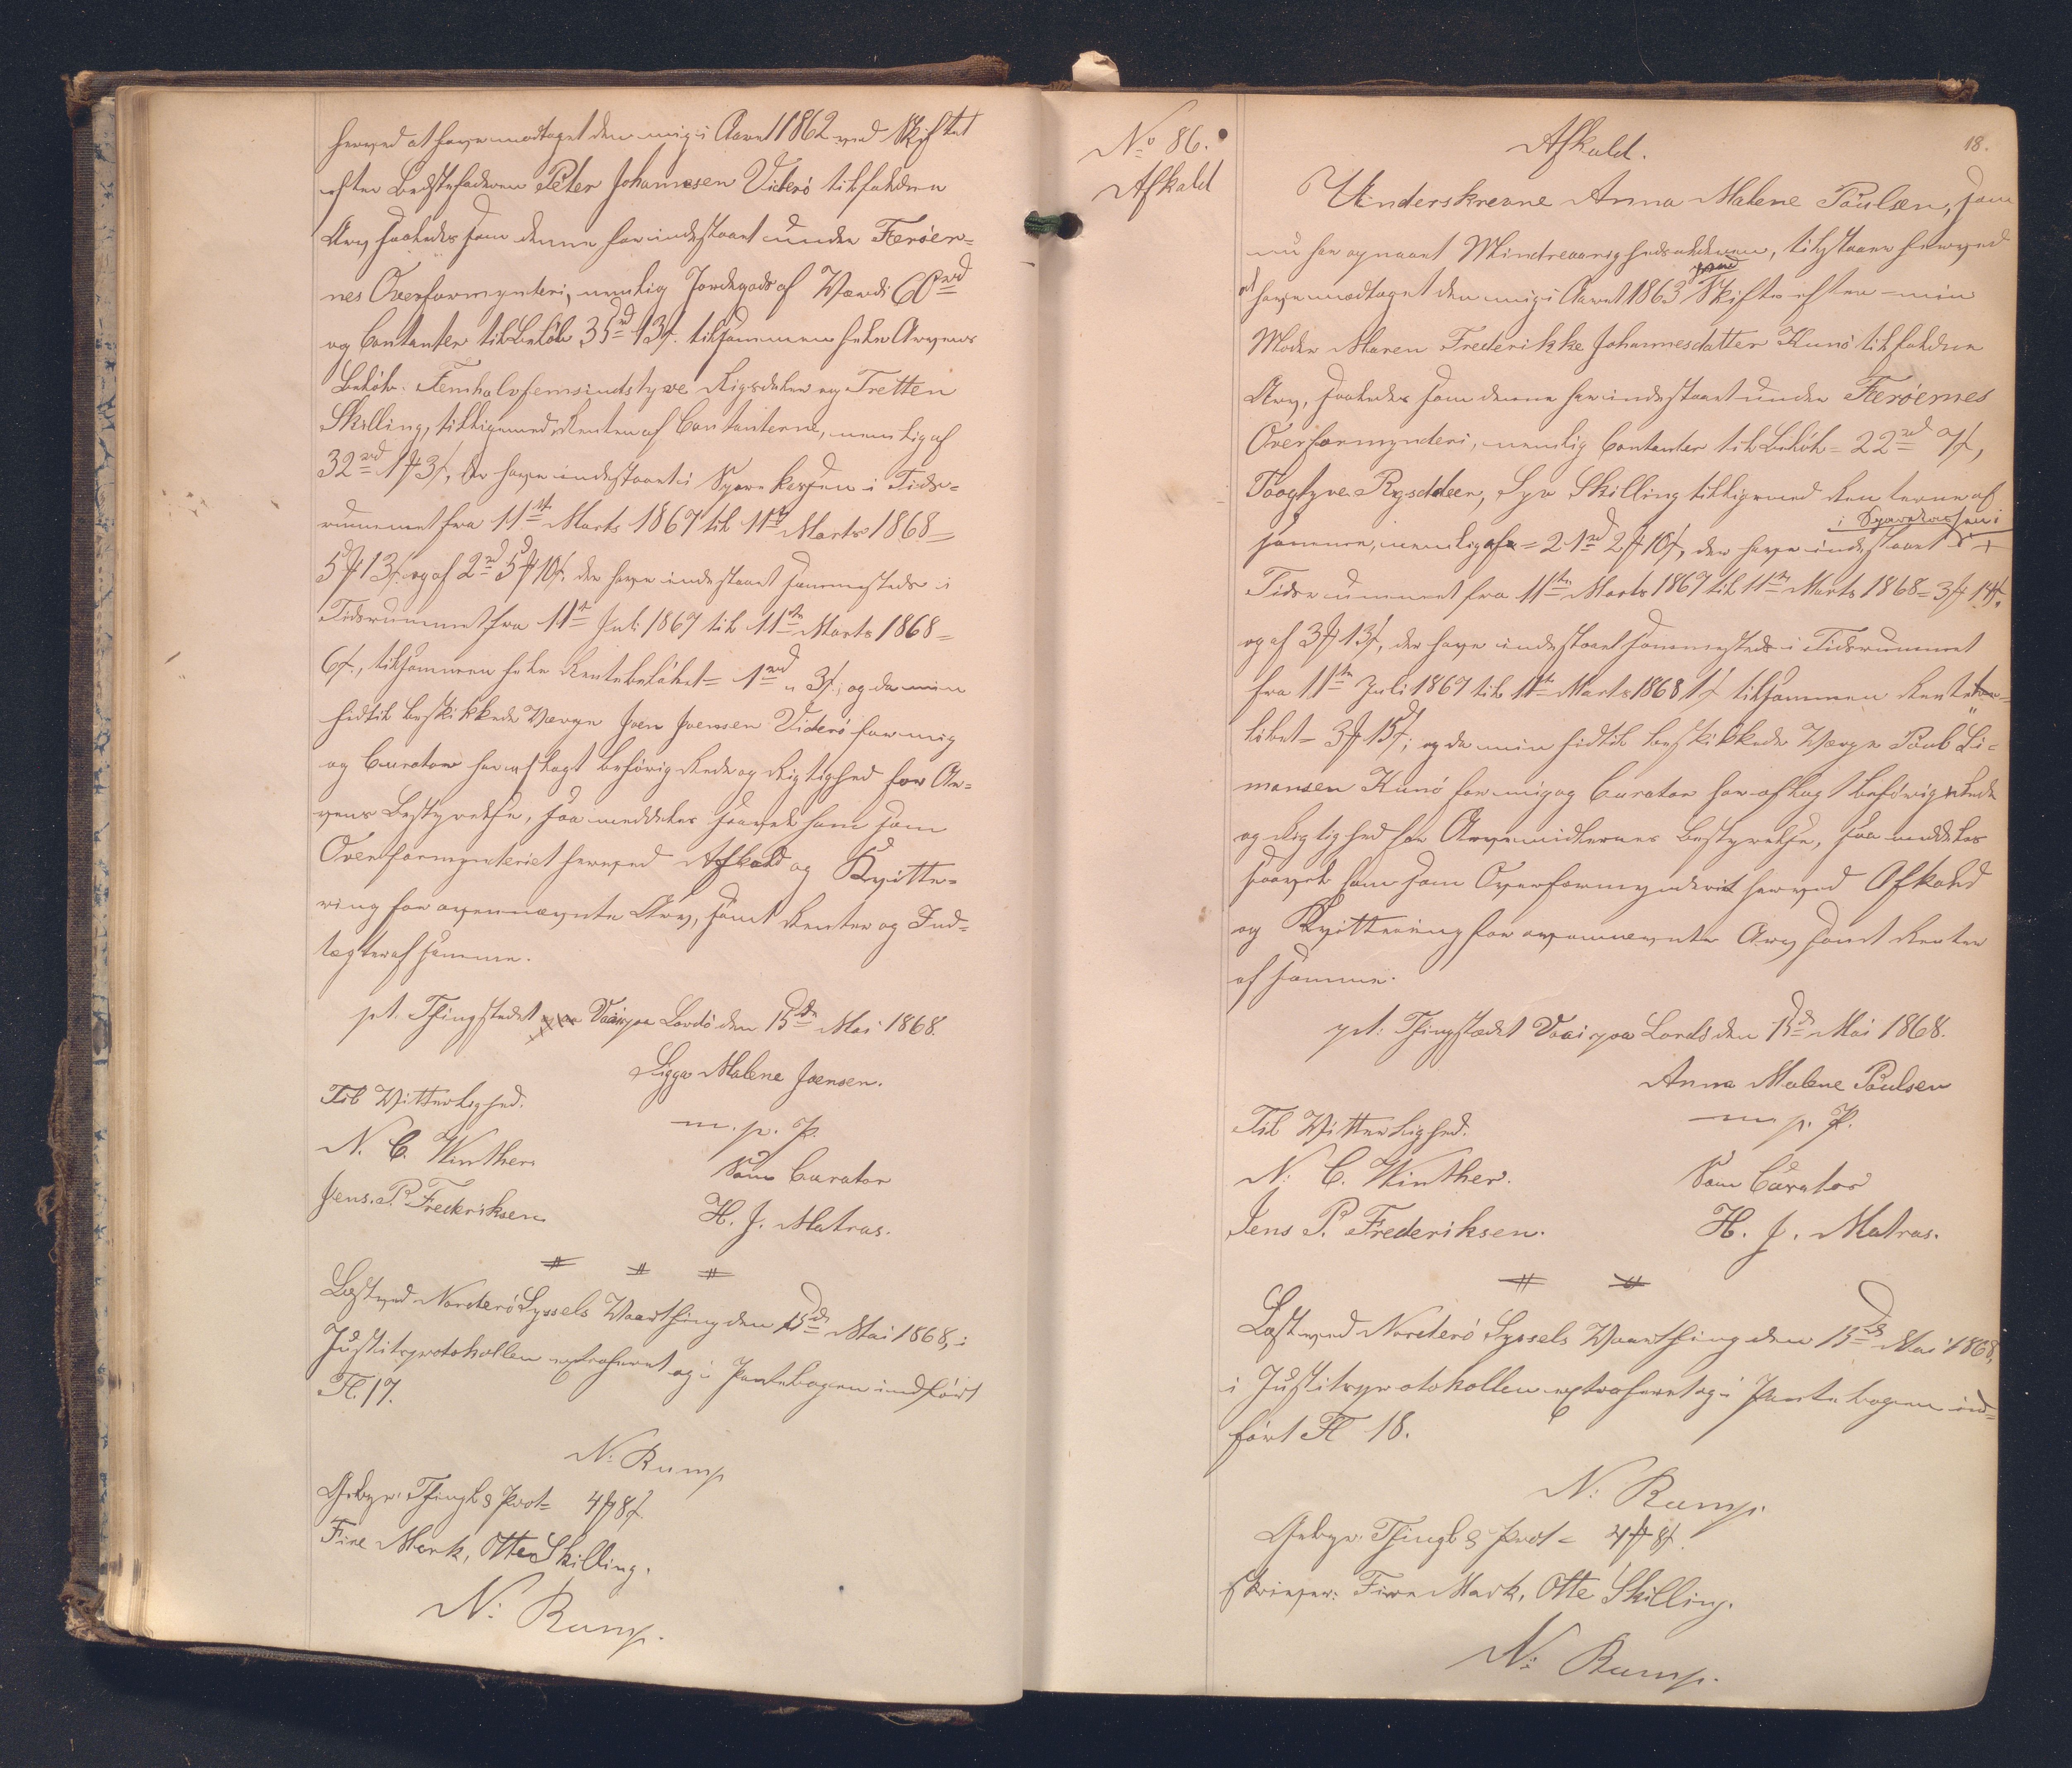 herved at have modtaget den mig i Aaret 1862 ved Skiftet
efter Bedstefaderen Peter Johannesen Viderö tilfaldne
Arv, saaledes som denne har indestaaet under Færöer-
nes Overformynderi, nemlig Jordegods af Værdi 60 rd
og Contanter til Beløb 35 rd 13 s. tilsammen hele Arvens
Beløb. Femhalvfemsindstyve Rigsdaler og Tretten
Skilling, tilligemed Renten af Contanterne, nemlig af
32 rd 1 # 3 s, der have indestaaet i Sparekassen i Tids-
rummet fra 11te Marts 1867 til 11te Marts 1868 =
5 # 13 s. og af 2 rd 5 # 10 s. der have indestaaet sammesteds i
Tidsrummet fra 11te Juli 1867 til 11te Marts 1868 =
6 s., tilsammen hele Rentebeløbet = 1 rd " 3 s; og da min
hidtil beskikkede Værge Joen Joensen Viderö for mig
og Curator har aflagt behörig Rede og Rigtighed for Ar-
vens Bestyrelse, saa meddeles saavel ham som
Overformynderiet herved Afkald og Kvitte-
ring for ovennævnte Arv, samt Renter og Ind-
tægter af samme.
pt. Thingstedet Vaaig paa Bordö den 15de Mai 1868.
Sigga Malene Joensen.
Til Vitterlighed.
m. p. P.
N. C. Winther.
Som Curator
Jens. P. Frederiksen
H. J. Matras.
Læst ved Norderö Syssels Vaarthing den 15de Mai 1868, i
Justitsprotokollen extraheret og i Pantebogen indfört
Fl. 17.
N. Rump
Gebyr: Thingl & Prot = 4 # 8 s.
Fire Mark, Otte Skilling.
N. Rump.
No 86.
Afkald
18.
Afkald.
Underskrevne Anna Malene Poulsen, som
nu har opnaaet Mindreaarighedsalderen, tilstaaer herved
at have modtaget den mig i Aaret 1863 ved Skifte efter min
Moder Maren Frederikke Johannesdatter Kunö tilfaldne
Arv, saaledes som denne har indestaaet under Færöernes
Overformynderi, nemlig Contanter til Beløb = 22 rd 7 s,
Toogtyve Rigsdaler, Syv Skilling tilligemed Renterne af
samme, nemlig af = 21 rd 2 # 10 s, der have indestaaet i Sparekassen i
Tidsrummet fra 11te Marts 1867 til 11te Marts 1868 = 3 # 14 s.
og af 3 # 13 s, der have indestaaet sammesteds i Tidsrummet
fra 11te Juli 1867 til 11te Marts 1868 1 s tilsammen Rentebe-
löbet = 3 # 15 s; og da min hidtil beskikkede Værge Poul Si-
monsen Kunö for mig og Curator har aflagt behörig Rede
og Rigtighed for Arvemidlernes Bestyrelse, saa meddeles
saavel ham som Overformynderiet herved Afkald
og Kvittering for ovennævnte Arv samt Renter
af samme.
pt: Thingstedet Vaaig paa Bordö den 15de Mai 1868.
Anna Malene Poulsen
m. p. P.
Til Vitterlighed.
N. C. Winther.
Som Curator
Jens P. Frederiksen.
H. J. Matras.
Læst ved Norderö Syssels Vaarthing den 15de Mai 1868,
i Justitsprotokollen extraheret og i Pantebogen ind-
fört Fl 18.
N. Rump.
Gebyr: Thingl & Prot = 4 # 8 s.
skriver: Fire Mark, Otte Skilling.
N. Rump.